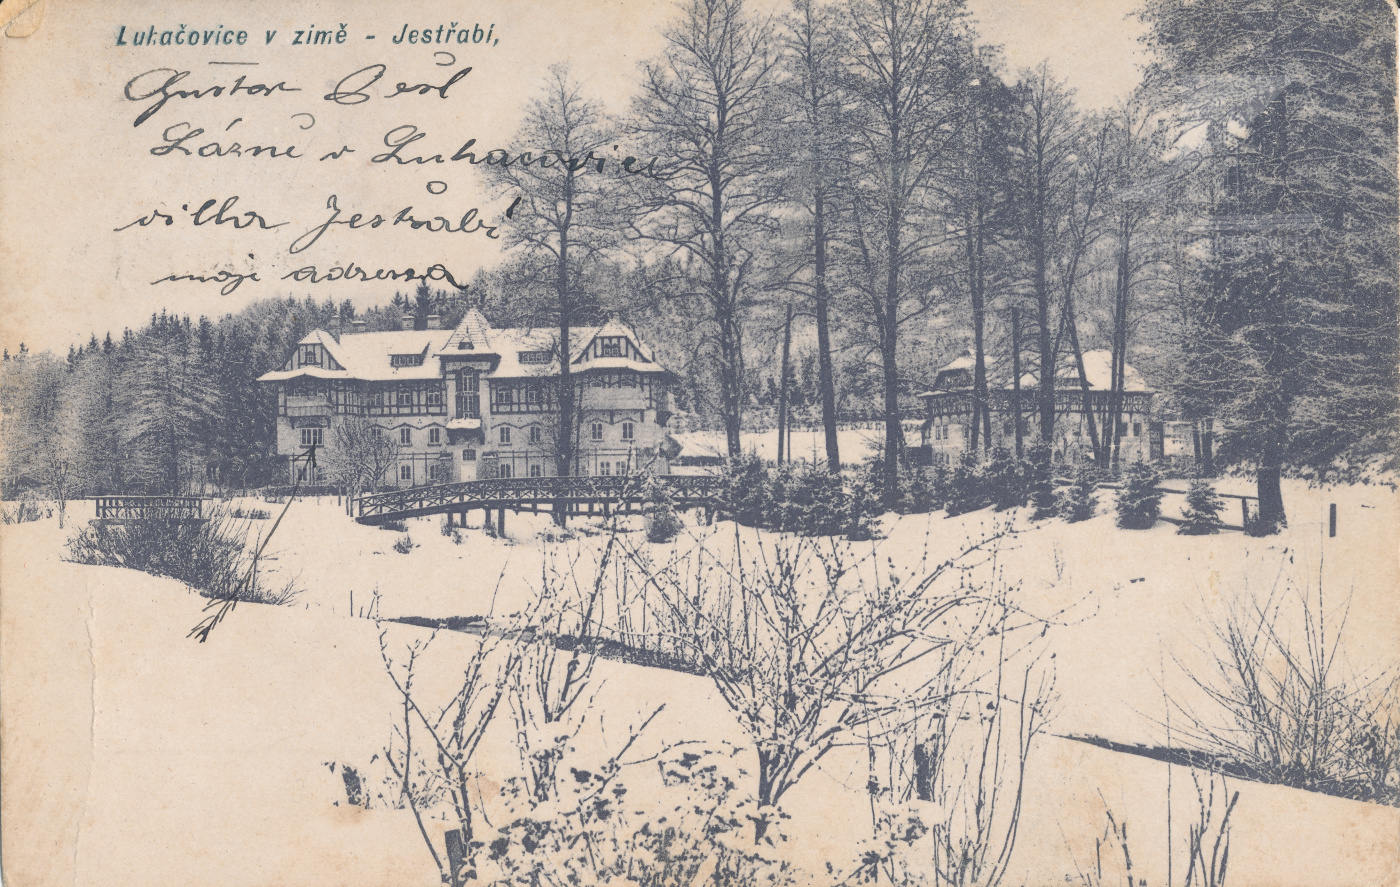 Luhačovice v zimě - Jestřabí,
Gustav
Lázně v Luhacovicu
villa Jestrabí
moje adressa